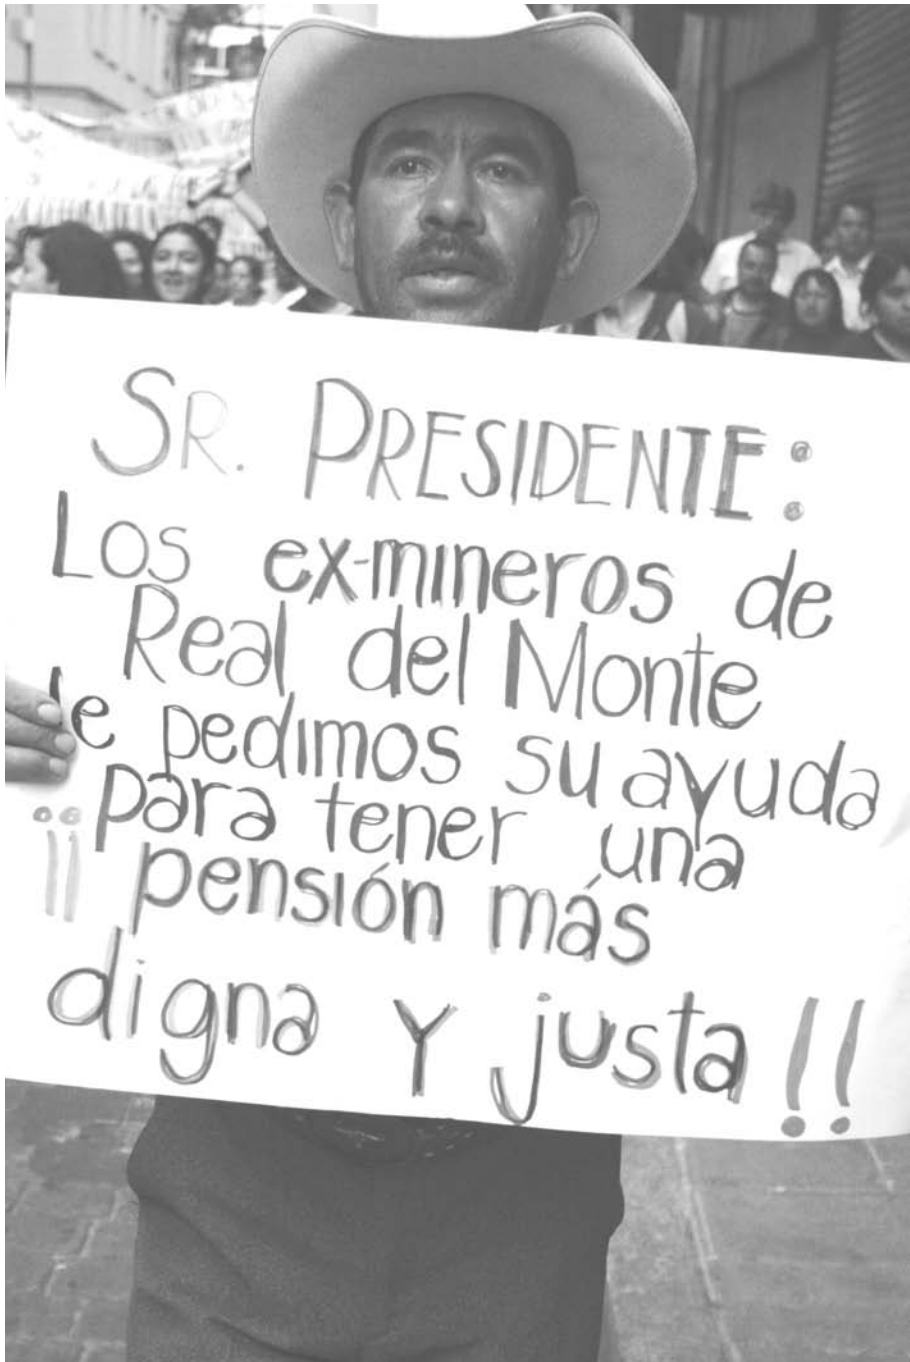 SR. PRESIDENTE:
Los ex-mineros de
Real del Monte
le pedimos su ayuda
para tener una
¡¡ pensión más
digna y justa !!